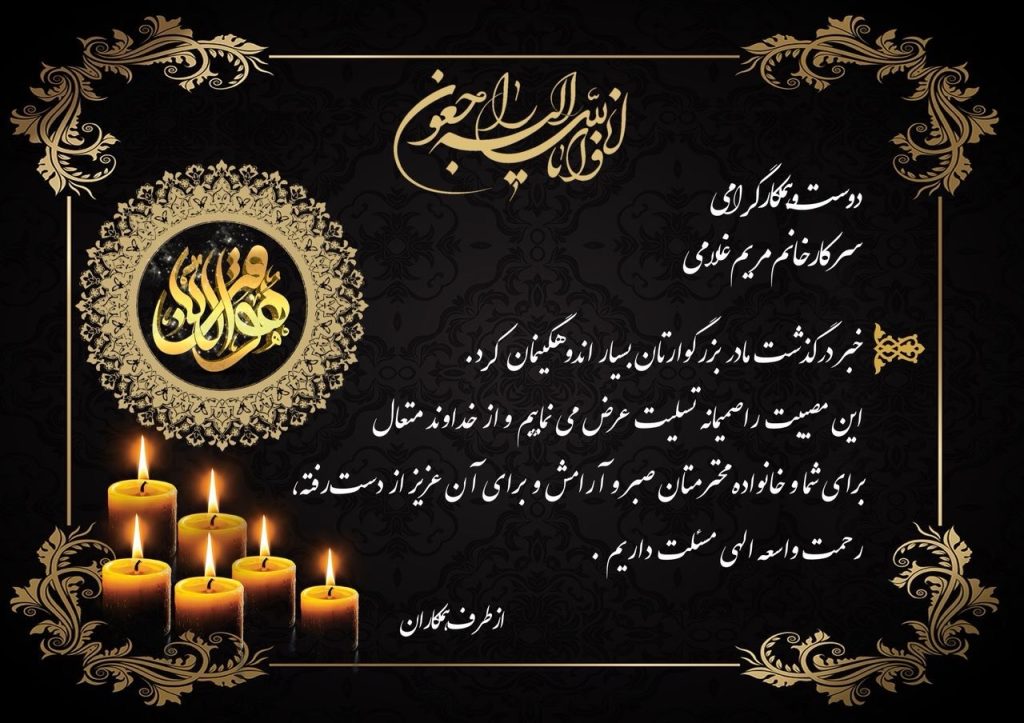 انا لله و انا الیه راجعون
دوست و همکار گرامی
سرکار خانم مریم غلامی
هو الباقی
خبر درگذشت مادر بزرگوارتان بسیار اندوهگینمان کرد.
این مصیبت را صمیمانه تسلیت عرض می نماییم و از خداوند متعال
برای شما و خانواده محترمتان صبر و آرامش و برای آن عزیز از دست رفته،
رحمت واسعه الهی مسئلت داریم .
از طرف همکاران